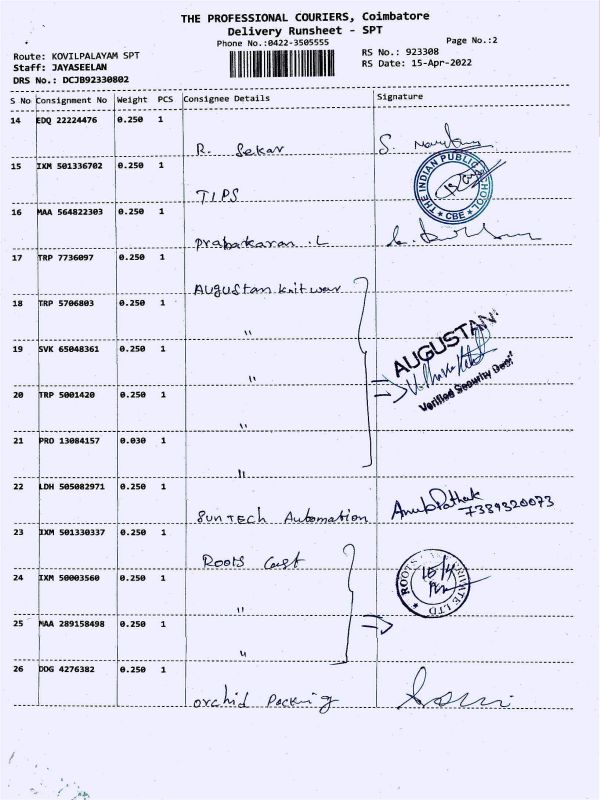 THE PROFESSIONAL COURIERS, Coimbatore
Delivery Runsheet - SPT
Phone No.:0422-3505555
Page No.:2
Route: KOVILPALAYAM SPT
RS No.: 923308
Staff: JAYASEELAN
RS Date: 15-Apr-2022
DRS No.: DCJB92330802
S No Consignment No Weight PCS Consignee Details Signature
14 EDQ 22224476 0.250 1
R. Sekar
15 IXM 501336702 0.250 1
TIPS
THE INDIAN PUBLIC SCHOOL
★ CBE ★
16 MAA 564822303 0.250 1
Prabakaran .L
17 TRP 7736097 0.250 1
Augustan knit war
18 TRP 5706803 0.250 1
"
19 SVK 65048361 0.250 1
"
AUGUSTAN
Verified Security Dept
20 TRP 5001420 0.250 1
"
21 PRO 13084157 0.030 1
"
22 LDH 505082971 0.250 1
SUNTECH Automation
Anub Pathak
7389320073
23 IXM 501330337 0.250 1
Roots Cast
24 IXM 50003560 0.250 1
"
ROOTS PRIVATE LTD
15/4
25 MAA 289158498 0.250 1
"
26 DDG 4276382 0.250 1
orchid Packing